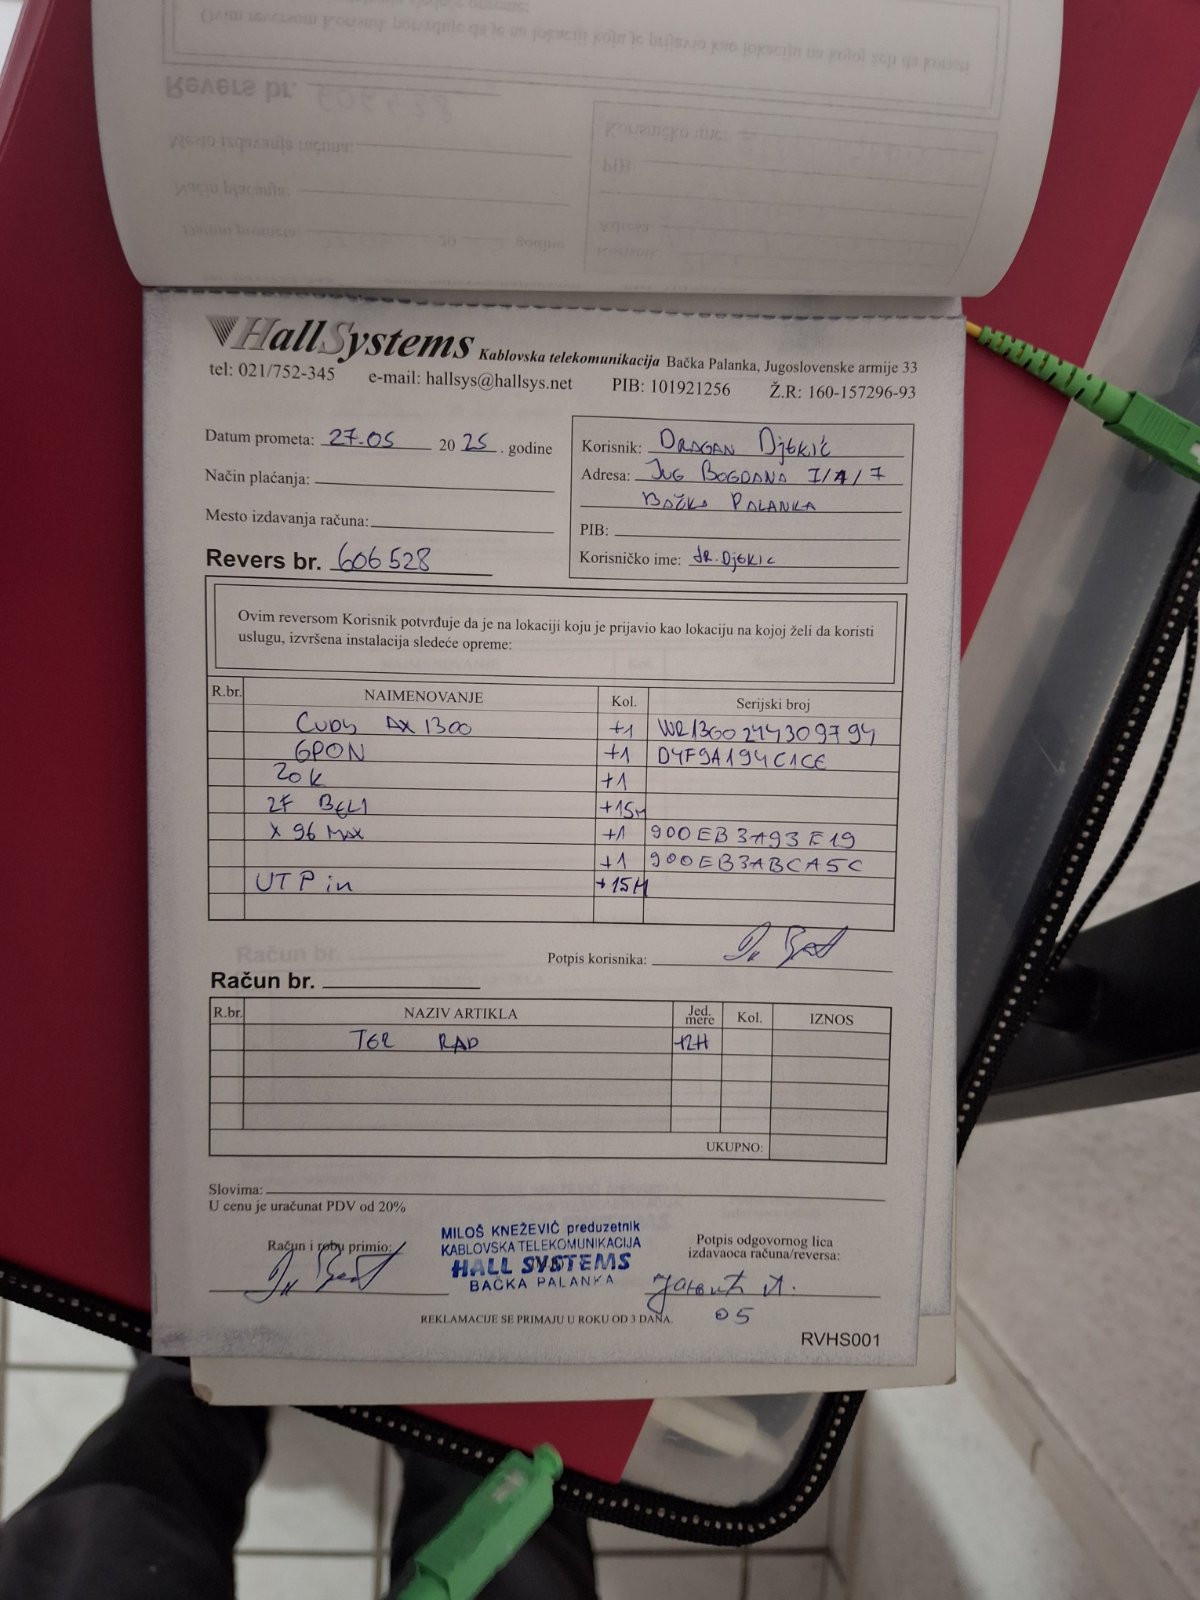 Ovim reversom Korisnik potvrđuje da je na lokaciji koju je prijavio kao lokaciju na kojoj želi da koristi
Revers br.
Korisničko ime:
Mesto izdavanja računa:
PIB:
Način plaćanja:
Adresa
Datum prometa: 20 godine
Korisnik:
HallSystems Kablovska telekomunikacija Bačka Palanka, Jugoslovenske armije 33
tel: 021/752-345 e-mail: hallsys@hallsys.net PIB: 101921256 Ž.R: 160-157296-93
Datum prometa: 27.05 2025. godine
Korisnik: DRAGAN Djekić
Način plaćanja:
Adresa: JUG BOGDANA 7/4/7
BAČKA PALANKA
Mesto izdavanja računa:
PIB:
Revers br. 606528
Korisničko ime: dr.Djekic
Ovim reversom Korisnik potvrđuje da je na lokaciji koju je prijavio kao lokaciju na kojoj želi da koristi
uslugu, izvršena instalacija sledeće opreme:
R.br. NAIMENOVANJE Kol. Serijski broj
Cudy AX 1300 +1 WR13G0244309794
GPON +1 D4F9A194C1CE
ZOK +1
2F BELI +15M
X 96 MAX +1 900EB3A93E19
+1 900EB3ABCA5C
UTP in +15M
Potpis korisnika:
Račun br.
R.br. NAZIV ARTIKLA Jed. mere Kol. IZNOS
TER RAD +2H
UKUPNO:
Slovima:
U cenu je uračunat PDV od 20%
Račun i robu primio:
MILOŠ KNEŽEVIĆ preduzetnik
KABLOVSKA TELEKOMUNIKACIJA
HALL SYSTEMS
BAČKA PALANKA
Potpis odgovornog lica
izdavaoca računa/reversa:
05
REKLAMACIJE SE PRIMAJU U ROKU OD 3 DANA.
RVHS001